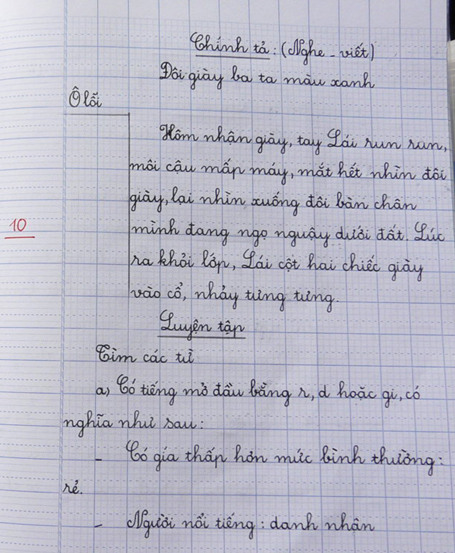 Chính tả: (Nghe - viết)
Đôi giày ba ta màu xanh
Ô lỗi
Hôm nhận giày, tay Lái run run,
môi cậu mấp máy, mắt hết nhìn đôi
giày, lại nhìn xuống đôi bàn chân
10
mình đang ngọ nguậy dưới đất. Lúc
ra khỏi lớp, Lái cột hai chiếc giày
vào cổ, nhảy tưng tưng.
Luyện tập
Tìm các từ
a) Có tiếng mở đầu bằng r, d hoặc gi, có
nghĩa như sau:
- Có gía thấp hơn mức bình thường:
rẻ.
- Người nổi tiếng: danh nhân